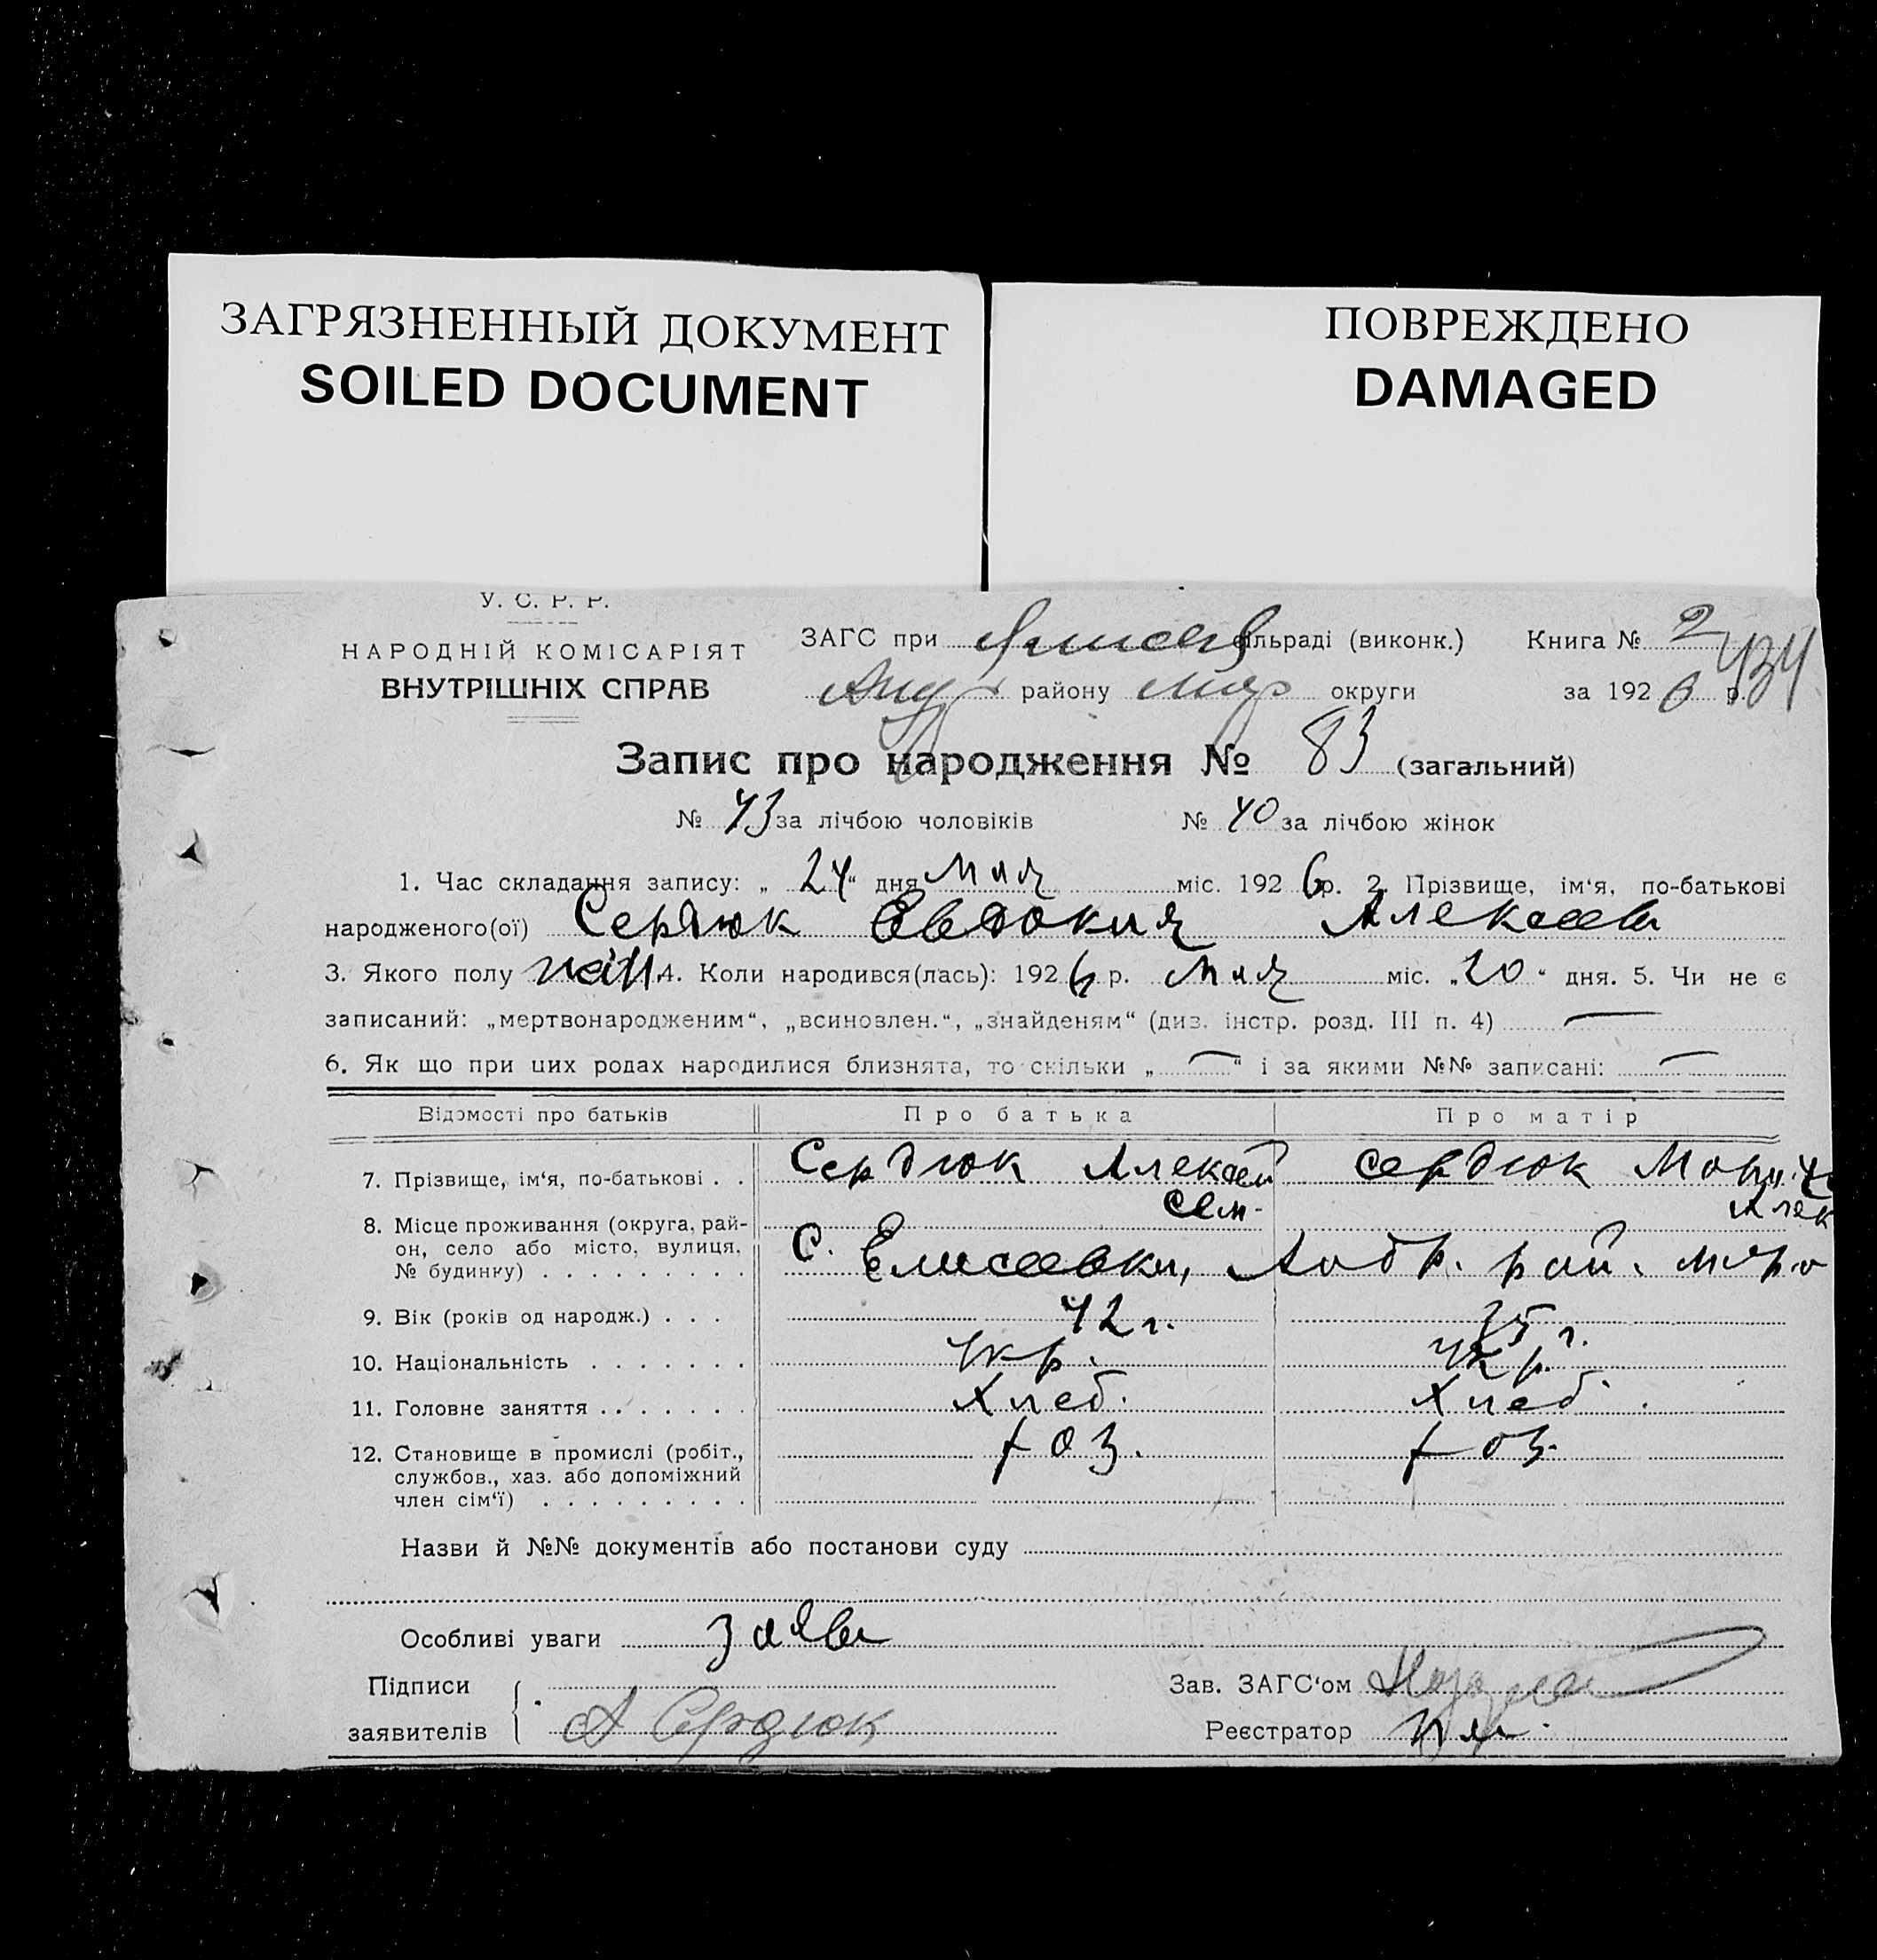 ЗАГРЯЗНЕННЫЙ ДОКУМЕНТ
SOILED DOCUMENT
ПОВРЕЖДЕНО
DAMAGED
У. С. Р. Р.
НАРОДНІЙ КОМІСАРІЯТ
ВНУТРІШНІХ СПРАВ
ЗАГС при сільраді (виконк.) Книга № 2
434
району округи за 1926 р.
Запис про народження № 83 (загальний)
№ 43 за лічбою чоловіків № 40 за лічбою жінок
1. Час складання запису: „ 24 “ дня Мая міс. 1926 р. 2. Прізвище, ім‘я, по-батькові
народженого(ої) Сердюк Евдокия Алексеев
3. Якого полу 4. Коли народився(лась): 1926 р. Мая міс. „20“ дня. 5. Чи не є
записаний: „мертвонародженим“, „всиновлен.“, „знайденям“ (див. інстр. розд. III п. 4) —
6. Як що при цих родах народилися близнята, то скільки „ — “ і за якими №№ записані: —
Відомості про батьків Про батька Про матір
7. Прізвище, ім‘я, по-батькові . . Сердюк Алексей Сем. Сердюк Алек
8. Місце проживання (округа, рай-
он, село або місто, вулиця,
№ будинку) . . . . . . . . . С. Елисеевка, рай.
9. Вік (років од народж.) . . . 42 г. 35 г.
10. Національність . . . . . . . Укр. Укр.
11. Головне заняття . . . . . . Хлеб. Хлеб.
12. Становище в промислі (робіт.,
службов., хаз. або допоміжний
член сім‘ї) . . . . . . . . .
Назви й №№ документів або постанови суду
Особливі уваги заяви
Підписи
заявителів А Сердюк
Зав. ЗАГС‘ом
Реєстратор